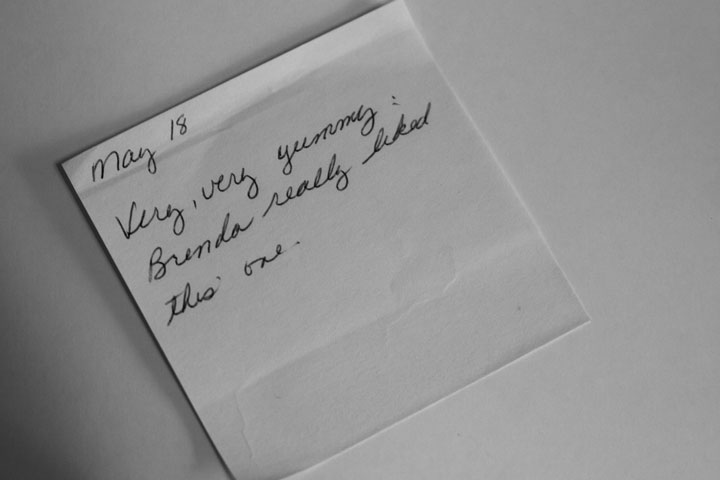 May 18
Very, very yummy:
Brenda really liked
this one.